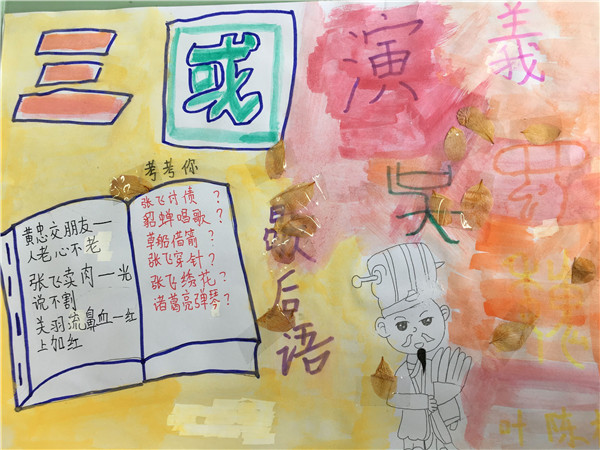 三國演義
考考你
黄忠交朋友一
人老心不老
张飞卖肉一光
说不割
关羽流鼻血一红
上加红
张飞讨债？
貂蝉唱歌？
草船借箭？
张飞穿针？
张飞绣花？
诸葛亮弹琴？
歇后语
吴
叶陈